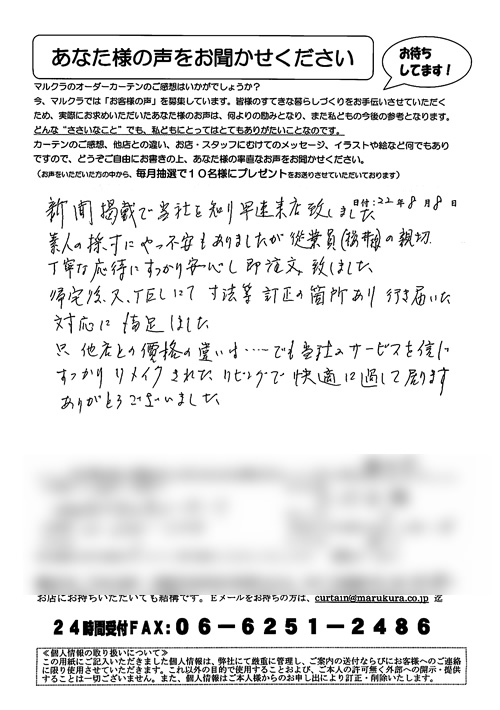 あなた様の声をお聞かせください
お待ち
してます！
マルクラのオーダーカーテンのご感想はいかがでしょうか？
今、マルクラでは「お客様の声」を募集しています。皆様のすてきな暮らしづくりをお手伝いさせていただく
ため、実際にお求めいただいたあなた様のお声は、何よりの励みとなり、また私どもの今後の参考となります。
どんな“ささいなこと”でも、私どもにとってはとてもありがたいことなのです。
カーテンのご感想、他店との違い、お店・スタッフにむけてのメッセージ、イラストや絵など何でもあり
ですので、どうぞご自由にお書きの上、あなた様の率直なお声をお聞かせください。
（お声をいただいた方の中から、毎月抽選で１０名様にプレゼントをお送りさせていただいております）
日付：22年8月8日
新聞掲載で当社を知り早速来店致しました
素人の採寸にやや不安もありましたが従業員(桜井様)の親切
丁寧な応待にすっかり安心し即注文致しました
帰宅後、又、TELにて寸法等訂正の箇所あり行き届いた
対応に満足しました
只他店との価格の違いは・・・・でも当社のサービスを信じ
すっかりリメイクされたリビングで快適に過して居ります
ありがとうございました
お店にお持ちいただいても結構です。Ｅメールをお持ちの方は、curtain@marukura.co.jp 迄
２４時間受付FAX：０６－６２５１－２４８６
≪個人情報の取り扱いについて≫
この用紙にご記入いただきました個人情報は、弊社にて厳重に管理し、ご案内の送付ならびにお客様へのご連絡
に限り使用させていただきます。これ以外の目的で使用することおよび、ご本人の許可無く外部への開示・提供
することは一切ございません。また、個人情報はご本人様からのお申し出により訂正・削除いたします。